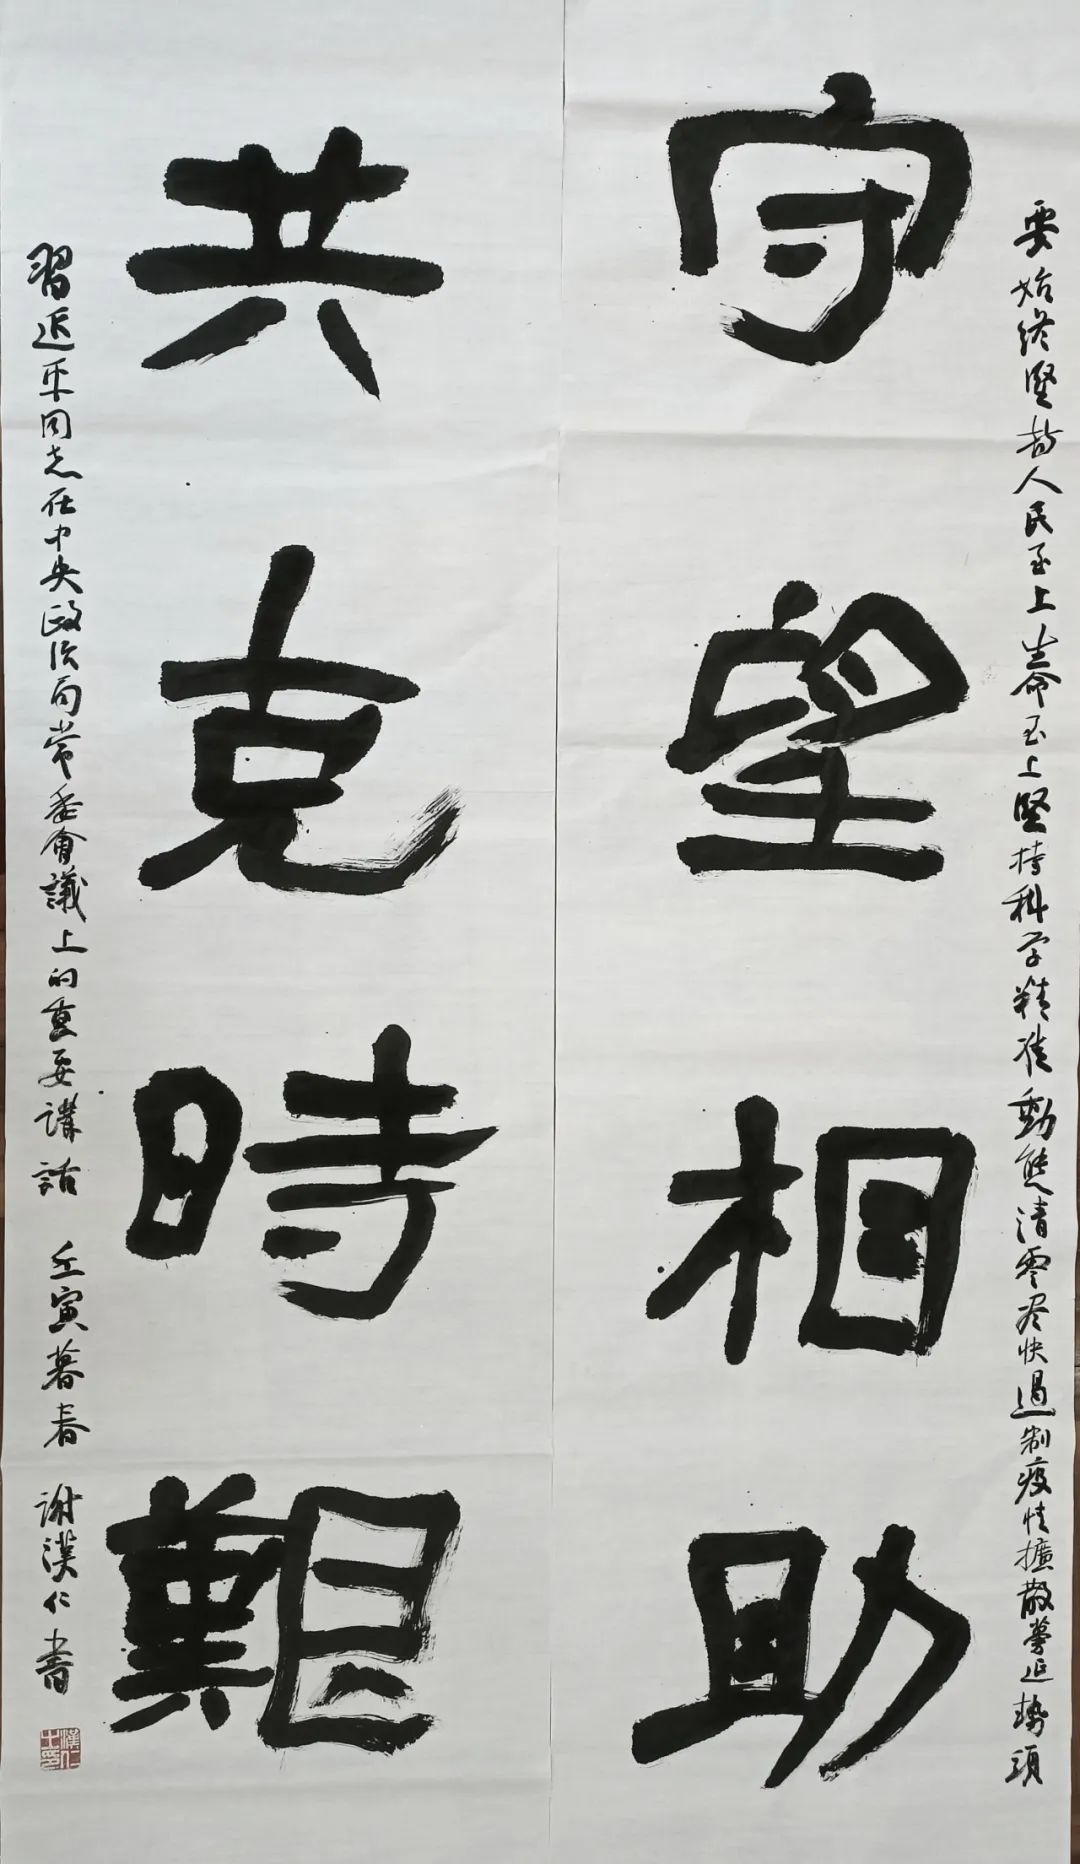 要始终堅持人民至上生命至上堅持科学精准動態清零尽快遏制疫情擴散蔓延势頭
守望相助
共克時艱
習近平同志在中央政治局常委會議上的重要講話 壬寅暮春 谢漢仁書
漢仁之印